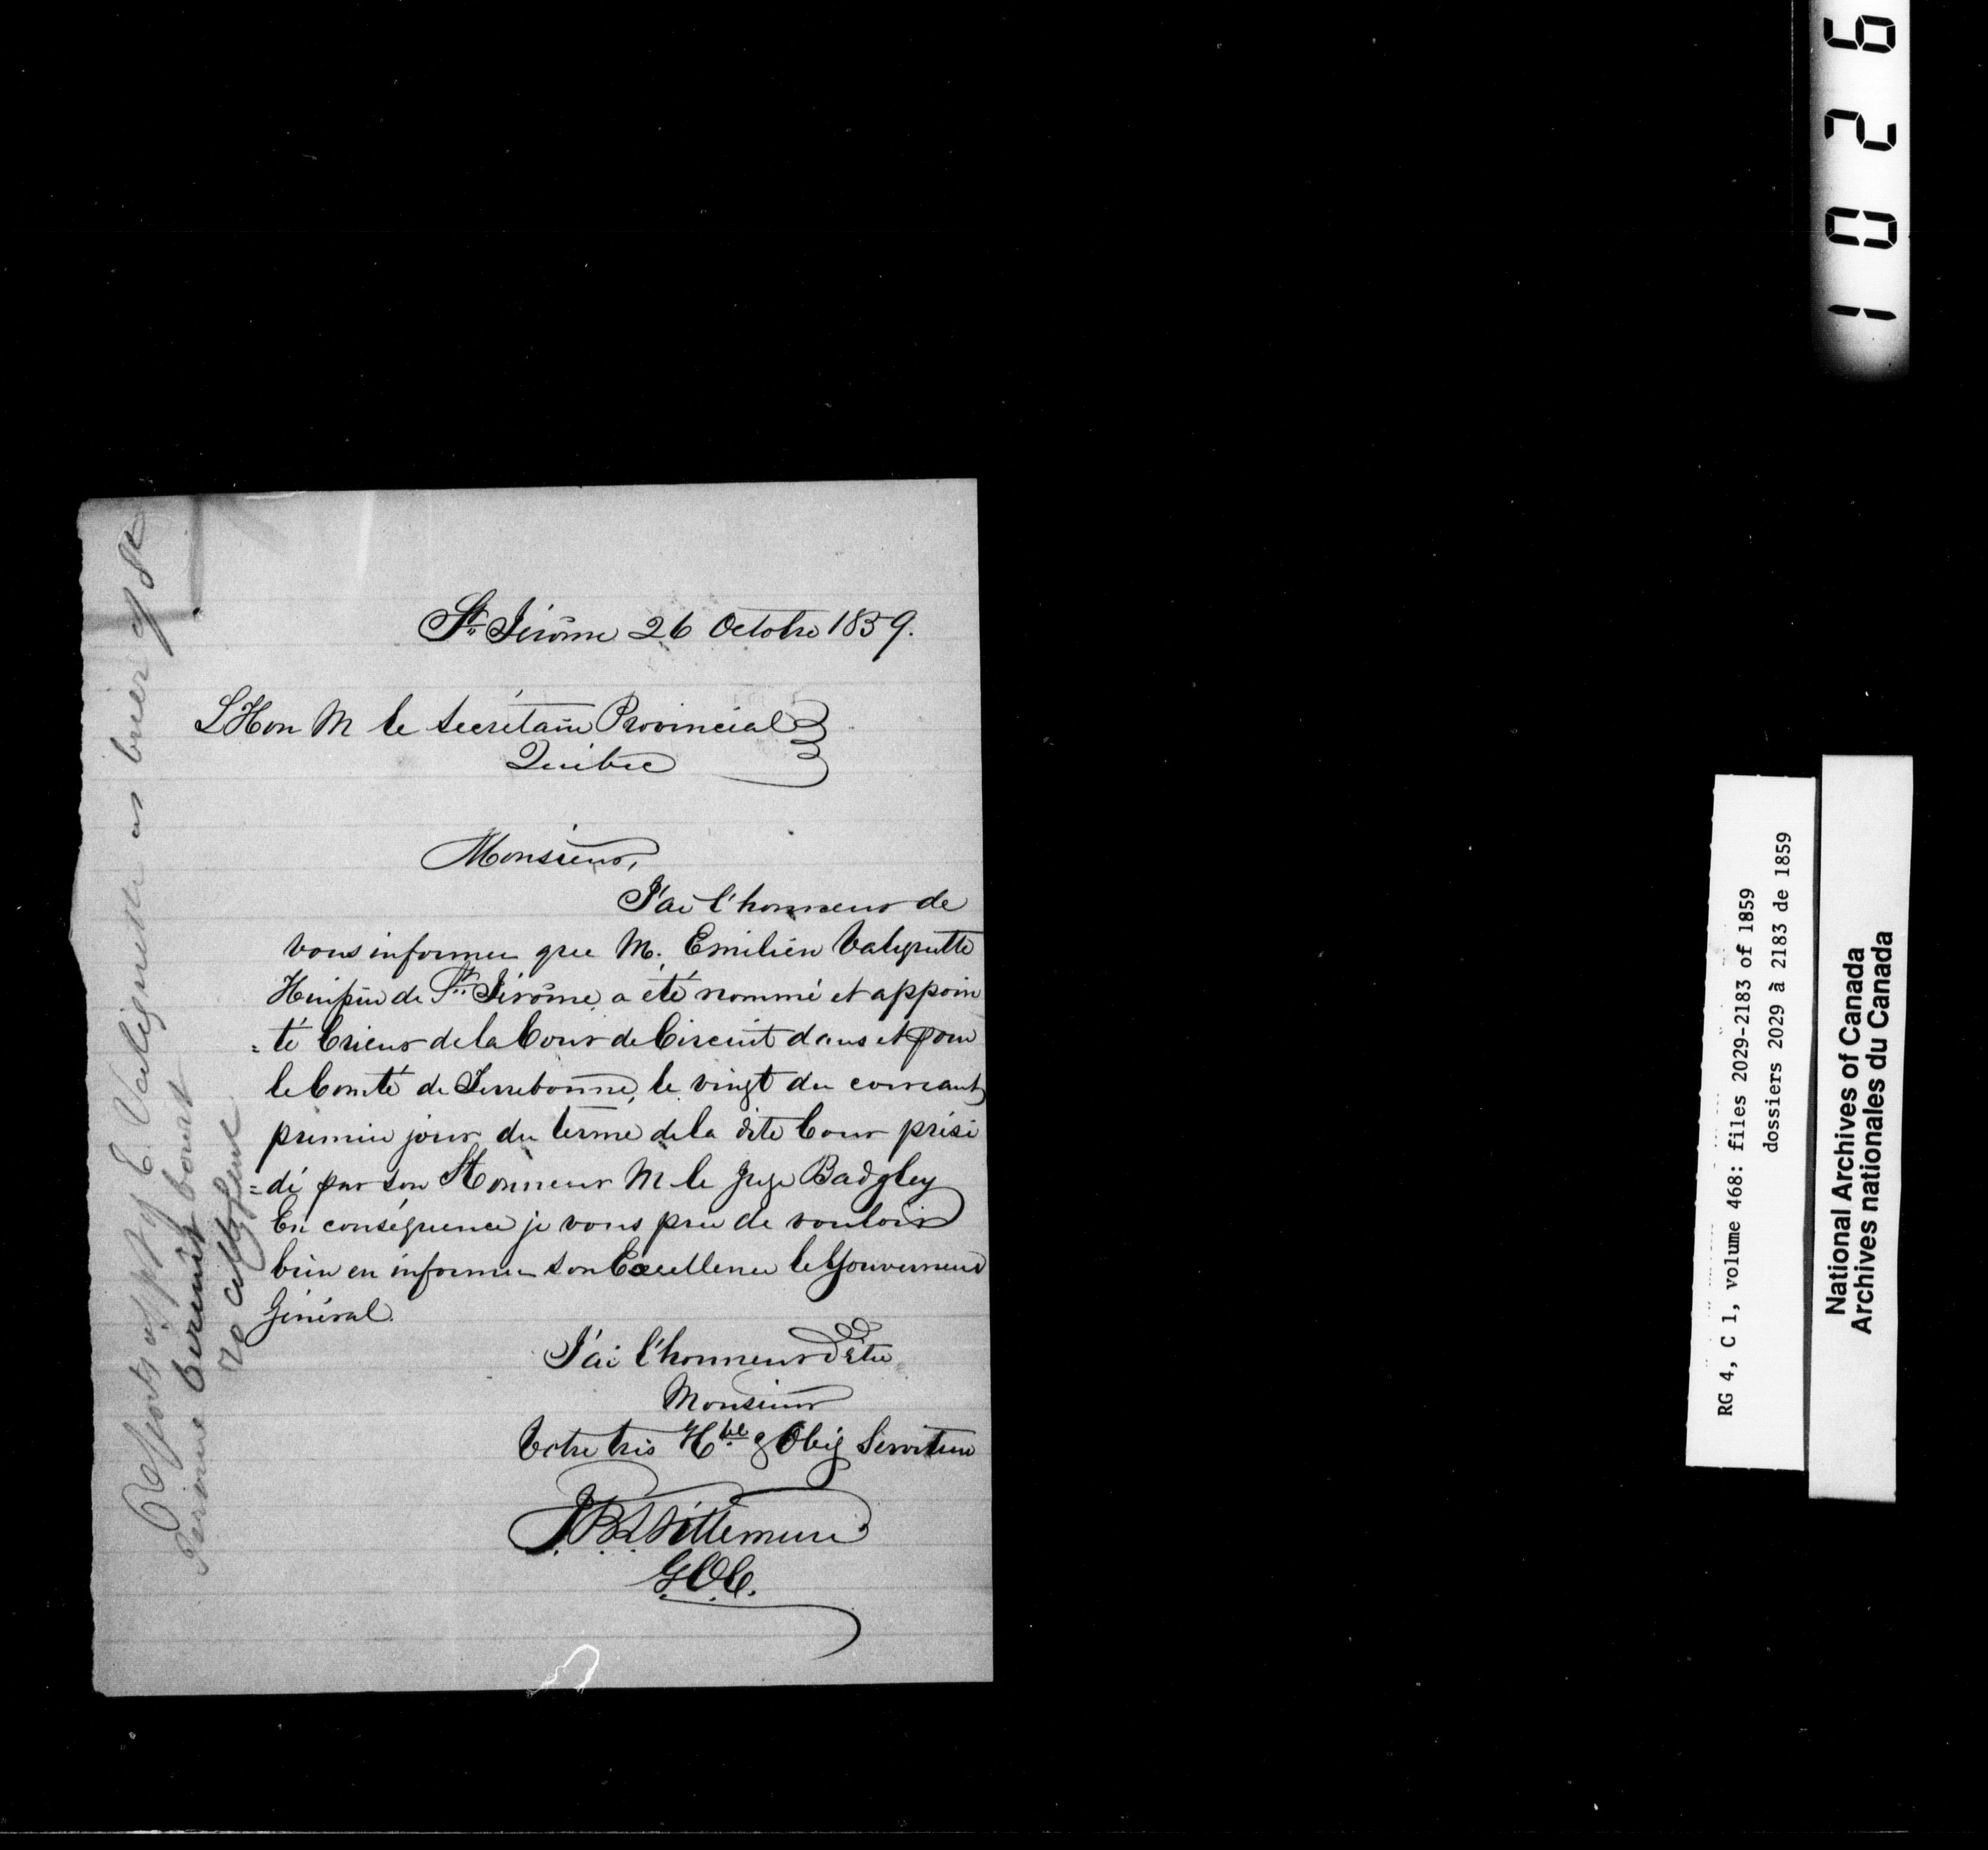 St. Jérôme 26 Octobre 1859.
L'Hon M le Secrétaire Provincial
Québec
Monsieur,
J'ai l'honneur de
vous informer que M. Emilién Valiquette
Huissier de St. Jérôme a été nommé et appoin
= té Crieur de la Cour de Circuit dans et pour
le Comté de Terrebonne, le vingt du courant
premier jour du terme de la dite Cour prési
= dé par son Honneur M le Juge Badgley
En conséquence je vous prie de vouloir
bien en informer son Excellence le Gouverneur
Général.
J'ai l'honneur d'être
Monsieur
Votre très Hble & Obéis Serviteur
J.B.L. Villemure
G.C.C.
Reports appt of E. Valiquette as crier of St
Jerome Circuit Court
1026
RG 4, C 1, volume 468: files 2029-2183 of 1859
dossiers 2029 à 2183 de 1859
National Archives of Canada
Archives nationales du Canada